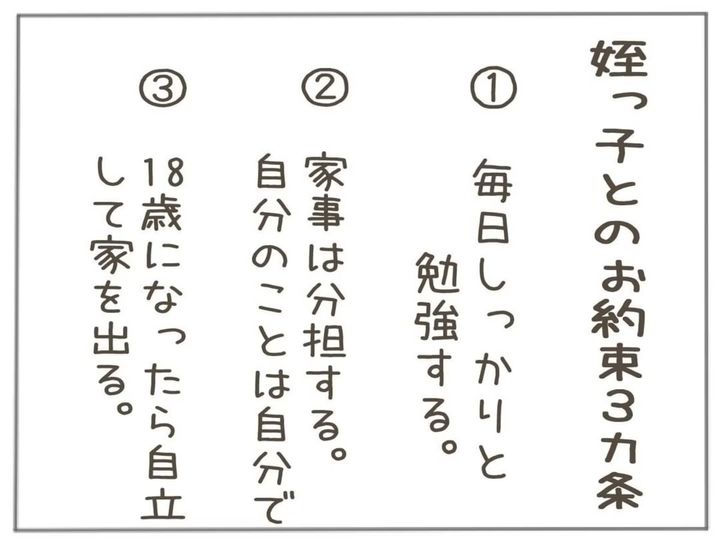 姪っ子とのお約束3カ条
①
毎日しっかりと
勉強する。
②
家事は分担する。
自分のことは自分で
③
18歳になったら自立
して家を出る。